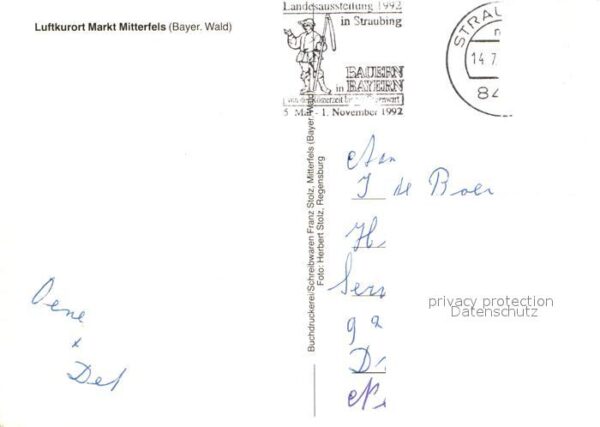 Luftkurort Markt Mitterfels (Bayer. Wald)
Landesausstellung 1992
in Straubing
BAUERN
in BAYERN
5. Mai - 1. November 1992
STRAU
14.7.
84
Buchdruckerei/Schreibwaren Franz Stolz, Mitterfels (Bayer. Wald)
Foto: Herbert Stolz, Regensburg
Aan
J de Boer
H
Ser
9
D
Ne
privacy protection
Datenschutz
Oene
x
Det